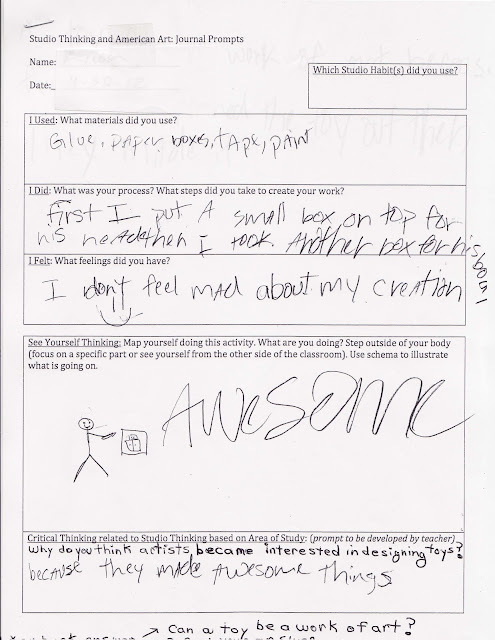 Studio Thinking and American Art: Journal Prompts
Name:
Which Studio Habit(s) did you use?
Date:
I Used: What materials did you use?
Glue, paper boxes, tape, paint
I Did: What was your process? What steps did you take to create your work?
First I put A small box on top for
his head then I took Another box for his
I Felt: What feelings did you have?
I don't feel mad about my creation
See Yourself Thinking: Map yourself doing this activity. What are you doing? Step outside of your body
(focus on a specific part or see yourself from the other side of the classroom). Use schema to illustrate
what is going on.
AWESOME
Critical Thinking related to Studio Thinking based on Area of Study: (prompt to be developed by teacher)
Why do you think artists became interested in designing toys?
because they made awesome things
→ Can a toy be a work of art?